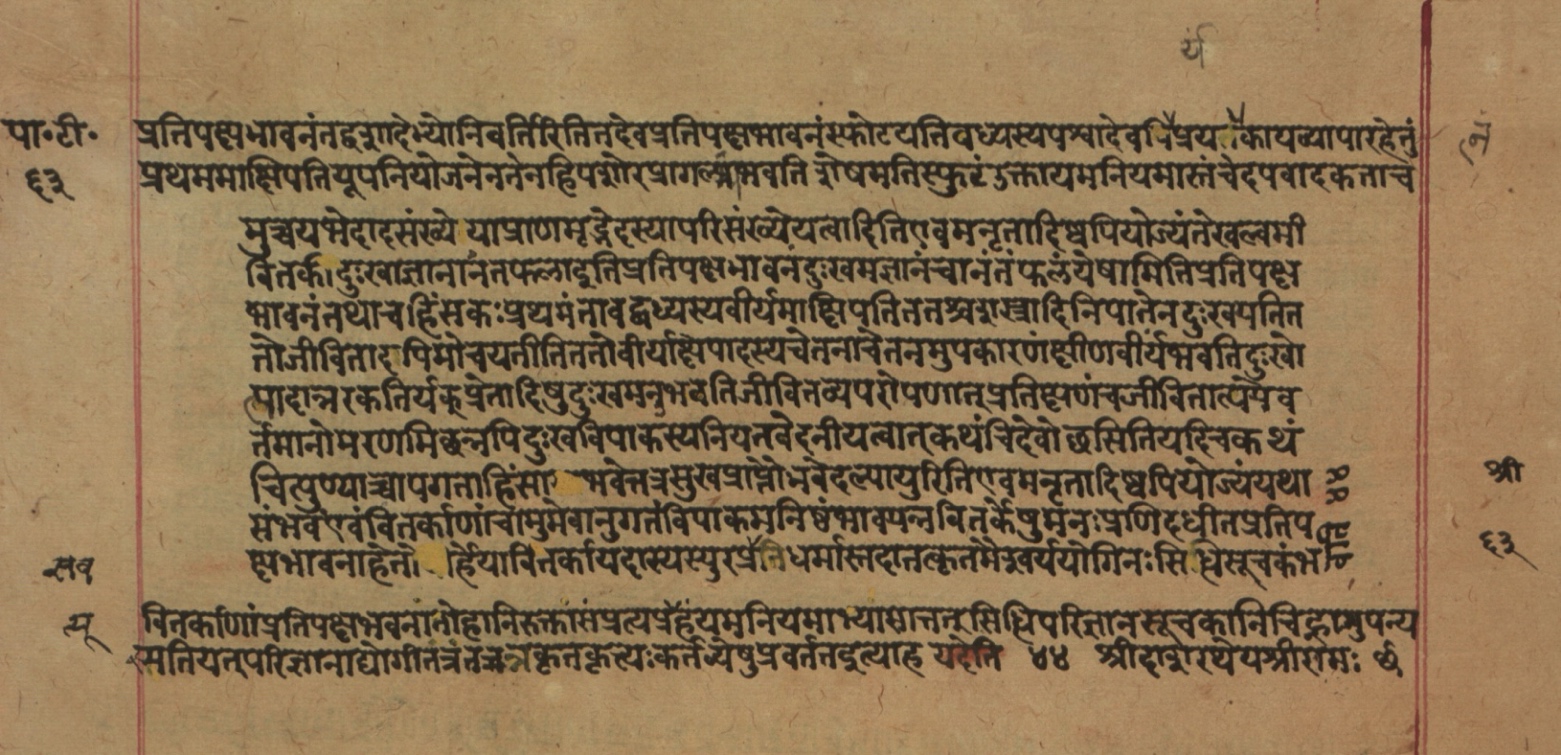 र्य
पा॰टी॰ प्रतिपक्षभावनंतद्वशादेभ्योनिवर्तिरितितदेवप्रतिपक्षभावनंस्फोटयतिवध्यस्यपश्चादेव कायव्यापारहेतुं
६३ प्रथममाक्षिपतियूपनियोजनेनतेनहिपशोरप्रागल्भ्यंभवति शेषमतिस्फुटंऽक्तायमनियमास्तंचेदपवादकताच
मुच्चयभेदादसंख्येयाप्राणभृद्भेदस्यापरिसंख्येयत्वादितिएवमनृतादिष्वपियोज्यंतेखल्वमी
वितर्कादुःखाज्ञानानंतफलाइतिप्रतिपक्षभावनंदुःखमज्ञानंचानंतंफलंयेषामितिप्रतिपक्ष
भावनंतथाचहिंसकःप्रथमंतावद्वध्यस्यवीर्यमाक्षिपतिततश्चशस्त्रादिनिपातेनदुःखयतित
तोजीवितादपिमोचयतीतिततोवीर्याक्षेपादस्यचेतनाचेतनमुपकारणंक्षीणवीर्यंभवतिदुःखो
त्पादान्नरकतिर्यक्प्रेतादिषुदुःखमनुभवतिजीवितव्यपरोपणात्प्रतिक्षणंचजीवितात्ययेव
र्तमानोमरणमिच्छन्नपिदुःखविपाकस्यनियतवेदनीयत्वात्कथंचिदेवोच्छ्वसितियदिचकथं
चित्पुण्याच्चापगताहिंसा भवेत्तत्रसुखप्राप्तौभवेदल्पायुरितिएवमनृतादिष्वपियोज्यंयथा
संभवंएवंवितर्काणांचामुमेवानुगतंविपाकमनिष्टंभावयन्नवितर्केषुमनःप्रणिदधीतप्रतिप
क्षभावनाहेतो र्हेयावितर्कायदास्यस्युरप्रतिधर्मास्तदातत्कृतमैश्वर्यंयोगिनःसिद्धिसूचकंभ
वितर्काणांप्रतिपक्षभवनातोहानिरुक्तासंप्रत्यप्रहंयमनियमाभ्यासात्तत्सिद्धिपरिज्ञानसूचकानिचिह्नान्युपन्य
स्यतियत्परिज्ञानाद्योगीतत्रतत्रकृतकृत्यःकर्तव्येषुप्रवर्ततइत्याह यदेति ४४ श्रीदाशरथेयश्रीरामः
श्री
६३